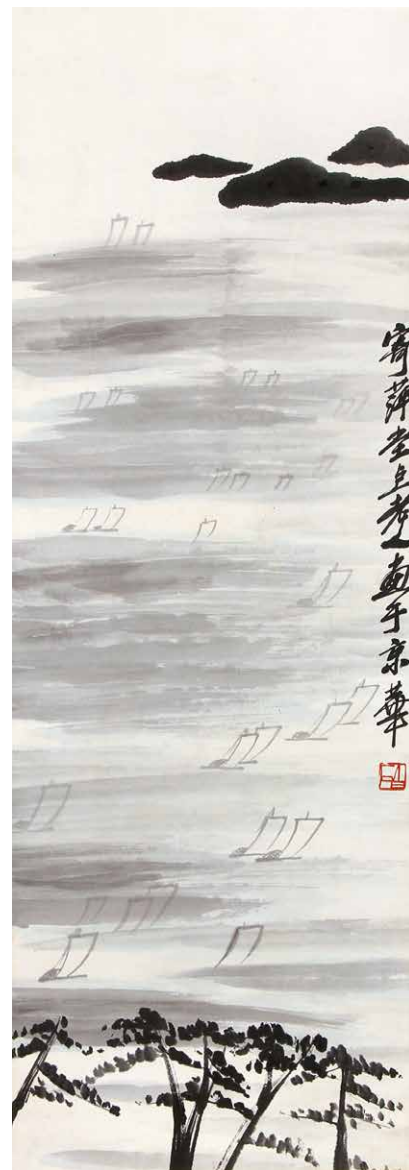 寄萍堂上老人畫于京華